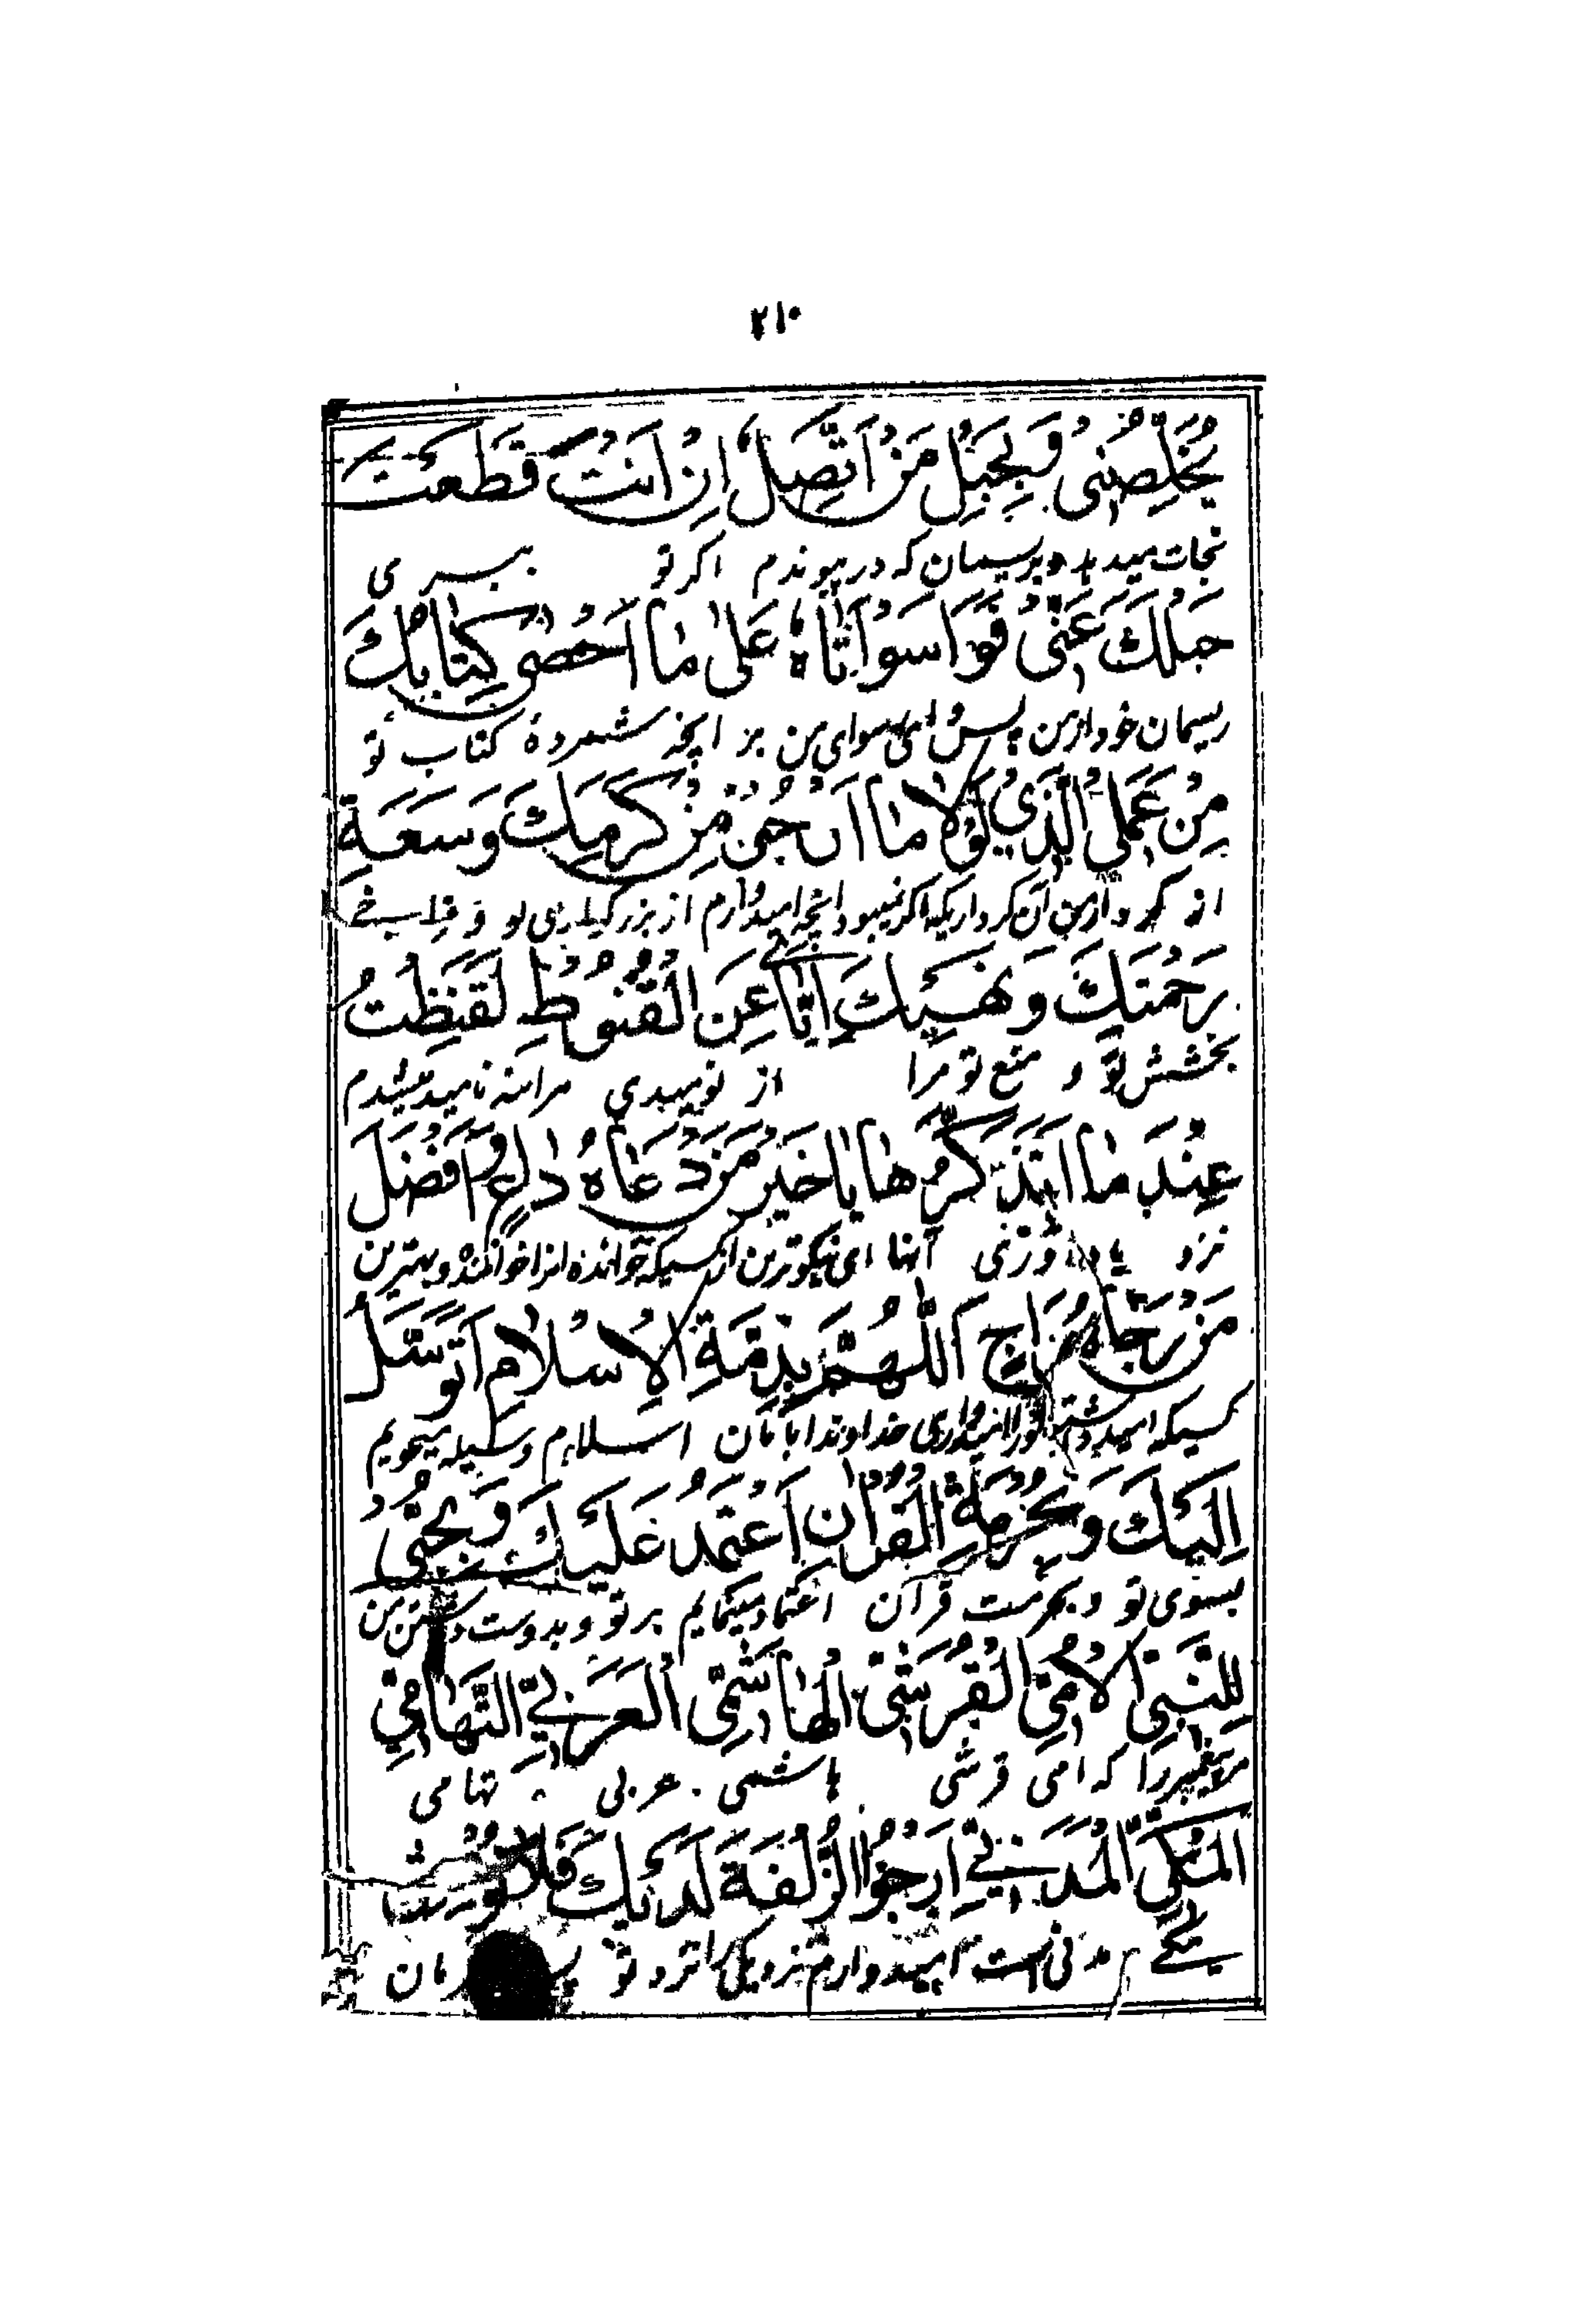 ۲۱۰
يُخَلِّصُنِي وَبِحَبْلِ مَنْ اَتَّصِلُ اِنْ اَنْتَ قَطَعْتَ
نجات میدهد و بریسمان که در پیوندم اکر تو ببری
حَبْلَكَ عَنّي فَوَا سَوْاَتَاهُ عَلٰى مٰا اَحْصٰى كِتٰابُكَ
ریسمان خود از من پس ای سوای من بر انچه شمردهٔ کتاب تو
مِنْ عَمَلِي الَّذِي لَوْلاٰ مٰا اَرْجُو مِنْ كَرَمِكَ وَسَعَةِ
از کردار من آن کرداریکه اکر نمیبود انچه امیدوارم از بزرکیاری تو و فراخی
رَحْمَتِكَ وَنَهْيِكَ اِيّٰايَ عَنِ الْقُنُوطِ لَقَنَطْتُ
بخشش تو و منع تو مرا از نومیدی مراینه نامید میشدم
عِنْدَ مٰا اَتَذَكَّرُهٰا يٰا خَيْرَ مَنْ دَعٰاهُ دٰاعٍ وَاَفْضَلَ
نزد آنها ای نیکوترین از کسیکه خوانده انرا خواننده و بهترین
مَنْ رَجٰاهُ رٰاجٍ اَللّٰهُمَّ بِذِمَّةِ الْاِسْلاٰمِ اَتَوَسَّلُ
کسیکه خداوندا بامان اسلام وسیله میجویم
اِلَيْكَ وَبِحُرْمَةِ الْقُرْاٰنِ اَعْتَمِدُ عَلَيْكَ وَبِحُبّي
بسوی تو و بحرمت قرآن اعتماد مینمایم بر تو و بدوست داشتن من
لِلنَّبِيِّ الْاُمِّيِّ الْقُرَشِيِّ الْهٰاشِمِيِّ الْعَرَبِيِّ التِّهٰامِيِّ
مر پیغمبر را که امی قرشی هاشمی عربی تهامی
الْمَكِّيِّ الْمَدَنِيِّ اَرْجُو الزُّلْفَةَ لَدَيْكَ فَلاٰ
مکی مدنی است امیدوارم نزدیکی را نزد تو